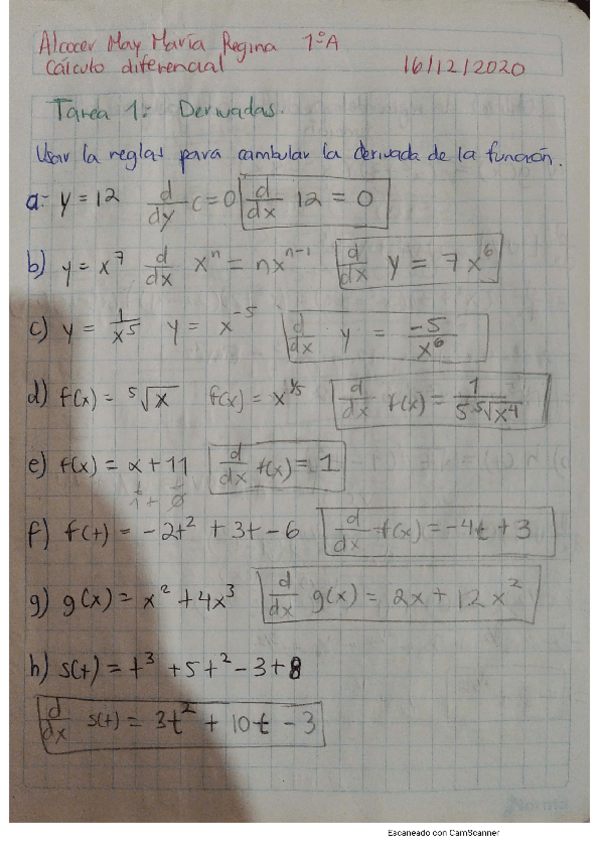 Alcocer May María Regina 1°A
Cálculo diferencial 16/12/2020
Tarea 1: Derivadas.
Usar la reglas para cambular la derivada de la función.
a- y = 12 d/dy c = 0 d/dx 12 = 0
b) y = x⁷ d/dx xⁿ = nxⁿ⁻¹ d/dx y = 7x⁶
c) y = 1/x⁵ y = x⁻⁵ d/dx y = -5/x⁶
d) f(x) = ⁵√x f(x) = x^1/5 d/dx f(x) = 1/5⁵√x⁴
e) f(x) = x + 11 d/dx f(x) = 1
1 + 0
f) f(t) = -2t² + 3t - 6 d/dx f(x) = -4t + 3
g) g(x) = x² + 4x³ d/dx g(x) = 2x + 12x²
h) s(t) = t³ + 5t² - 3 + 8
d/dx s(t) = 3t² + 10t - 3
Norma
Escaneado con CamScanner